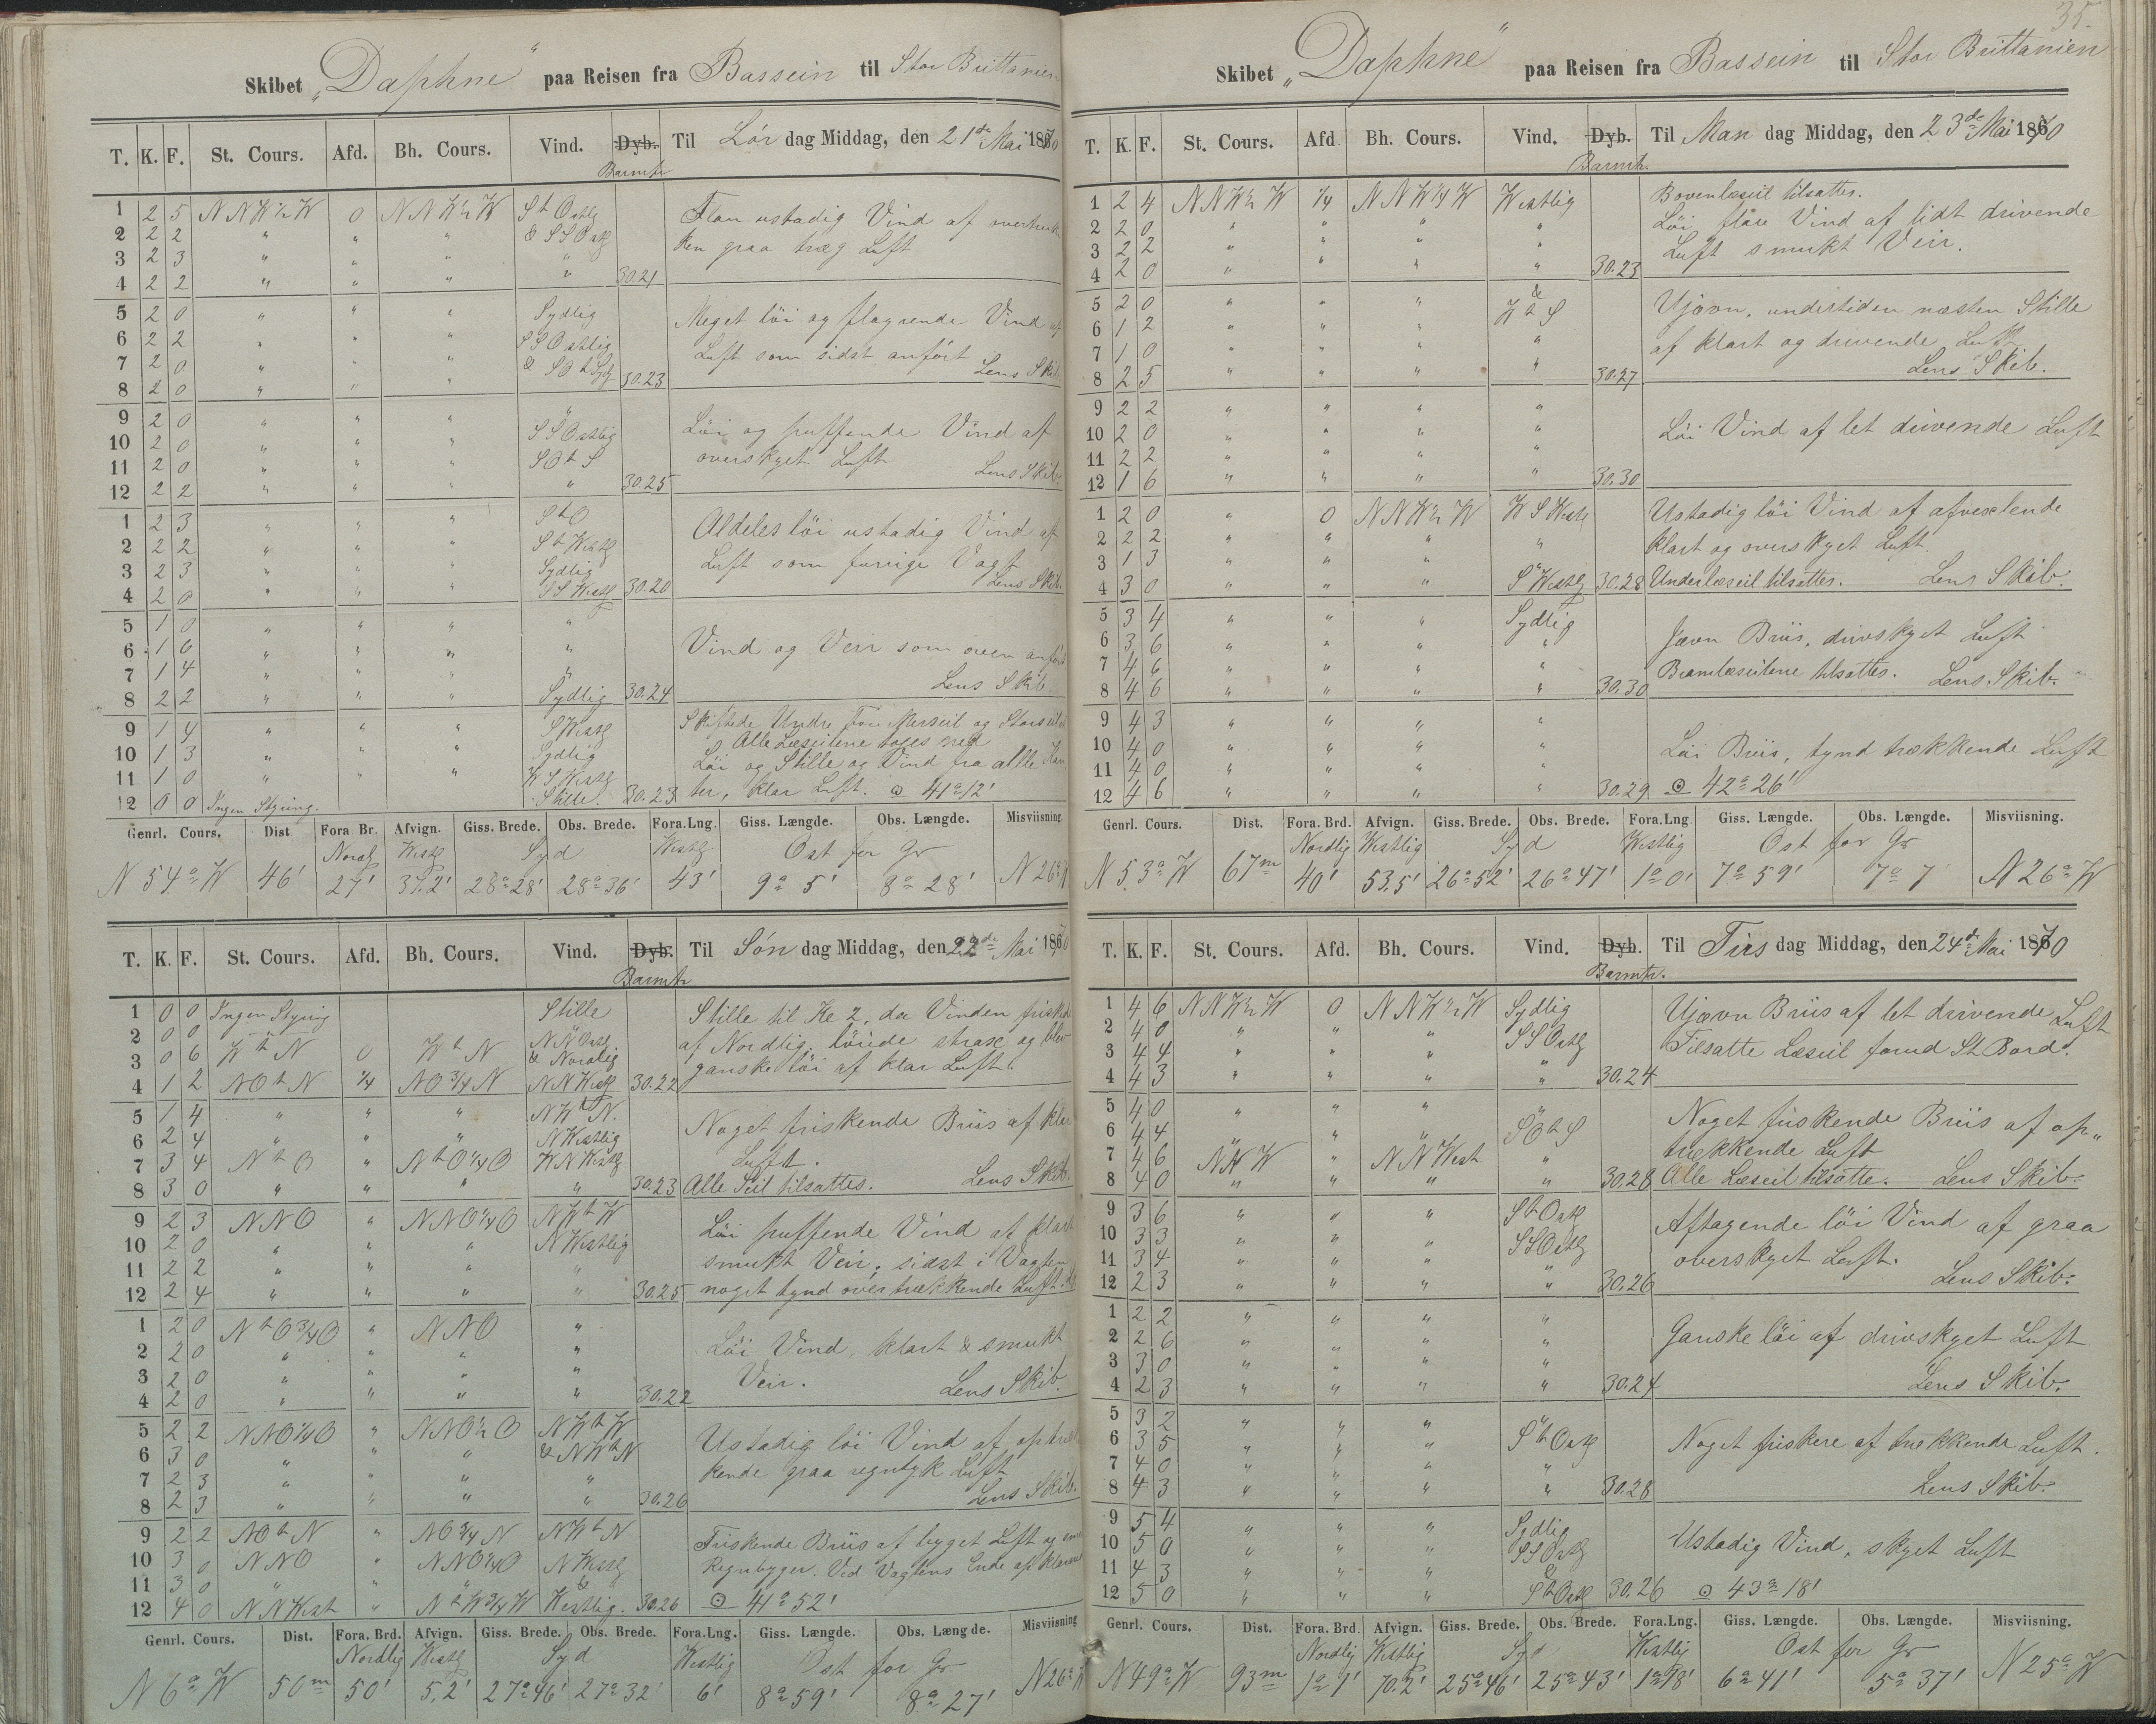 Skibet „Daphne“ paa Reisen fra Bassein til Stor Brittanien
T. K. F. St. Cours. Afd. Bh. Cours. Vind. Dyb. Barmtr Til Lör dag Middag, den 21de Mai 1870
1 2 5 NNW½W 0 NNW½W StOstlg Flau ustadig Vind af overtruk
2 2 2 " " " & SSOstlg ken graa træg Luft
3 2 3 " " " "
4 2 2 " " " " 30.21
5 2 0 " " " Sydlig Meget löi og flagrende Vind af
6 2 2 " " " SSOstlig Luft som sidst anfört
7 2 0 " " " & SOtSydlg Lens Skib.
8 2 0 " " " 30.23
9 2 0 " " " " Löi og puffende Vind af
10 2 0 " " " SSOstlig overskyet Luft
11 2 0 " " " SOtS Lens Skib.
12 2 2 " " " " 30.25
1 2 3 " " " StO Aldeles löi ustadig Vind af
2 2 2 " " " StWestlg Luft som forrige Vagt
3 2 3 " " " Sydlig Lens Skib.
4 2 0 " " " SSWestlg 30.20
5 1 0 " " " "
6 1 6 " " " " Vind og Veir som oven anfört
7 1 4 " " " " Lens Skib.
8 2 2 " " " Sydlig 30.24
9 1 4 " " " SWestlg Skiftede Undre For Merseil og Storseil
10 1 3 " " " Sydlig Alle Læseilene toges ned
11 1 0 " " " WSWestlg Löi og Stille og Vind fra alle Kan
12 0 0 Ingen Styring. Stille. 30.23 ter, klar Luft. ⊙ 41°12'
Genrl. Cours. Dist. Fora Br. Afvign. Giss. Brede. Obs. Brede. Fora.Lng. Giss. Længde. Obs. Længde. Misviisning.
Nordlg Westlg Syd Westlg Ost for Gr
N 54° W 46' 27' 37.2' 28°28' 28°36' 43' 9° 5' 8° 28' N 26° W
T. K. F. St. Cours. Afd. Bh. Cours. Vind. Dyb. Barmtr Til Sön dag Middag, den 22de Mai 1870
1 0 0 Ingen Styring Stille Stille til Kl 2, da Vinden friskede
2 0 0 " NNOstlg af Nordlig, löiede strax og blev
3 0 6 WtN 0 WtN & Nordlig ganske löi af klar Luft.
4 1 2 NOtN ¼ NO¾N NNWestlg 30.22
5 1 4 " " " NWtN. Noget friskende Briis af klar
6 2 4 " " " NWestlig Luft.
7 3 4 NtO " NtO¼O WNWestlg
8 3 0 " " " " 30.23 Alle Seil tilsattes. Lens Skib.
9 2 3 NNO " NNO¼O NWtW Löi puffende Vind af klart
10 2 0 " " " NWestlig smukt Veir, sidst i Vagten
11 2 2 " " " "
12 2 4 " " " " 30.25 noget tynd overtrækkende Luft.
1 2 0 NtO¾O " NNO "
2 2 0 " " " " Löi Vind, klart & smukt
3 2 0 " " " " Veir.
4 2 0 " " " " 30.22 Lens Skib.
5 2 2 NNO¼O " NNO½O NWtW Ustadig löi Vind af optræk
6 3 0 " " " & NWtN kende graa regntyk Luft
7 2 3 " " " "
8 2 3 " " " " 30.26 Lens Skib.
9 2 2 NOtN " NO¾N NWtN Friskende Briis af byget Luft og
10 3 0 NNO " NNO¼O NWestlg Regnbyger. Ved Vagtens Ende
11 3 0 " " " &
12 4 0 NNWest " NtW¾W Westlig. 30.26 ⊙ 41°52'
Genrl. Cours. Dist. Fora. Brd. Afvign. Giss. Brede. Obs. Brede. Fora.Lng. Giss. Længde. Obs. Længde. Misviisning
Nordlig Westlg Syd Westlig Ost for Gr
N 6° W 50m 50' 5.2' 27°46' 27°32' 6' 8°59' 8°27' N 26° W
35.
Skibet „Daphne“ paa Reisen fra Bassein til Stor Brittanien
T. K. F. St. Cours. Afd Bh. Cours. Vind. Dyb. Barmtr. Til Man dag Middag, den 23de Mai 1870
1 2 4 NNW½W ¼ NNW¼W Westlig Bovenlæseil tilsattes.
2 2 0 " " " " Löi, flau Vind af lidt drivende
3 2 2 " " " " Luft smukt Veir.
4 2 0 " " " " 30.23
5 2 0 " " " & Ujævn, undertiden næsten Stille
6 1 2 " " " WtS af klart og drivende Luft
7 1 0 " " " "
8 2 5 " " " " 30.27 Lens Skib.
9 2 2 " " " "
10 2 0 " " " " Löi Vind af let drivende Luft
11 2 2 " " " "
12 1 6 " " " " 30.30
1 2 0 " 0 NNW½W WSWestlg Ustadig löi Vind af afvexlende
2 2 2 " " " " klart og overskyet Luft.
3 1 3 " " " "
4 3 0 " " " SWestlg 30.28 Underlæseil tilsattes. Lens Skib.
5 3 4 " " " Sydlig
6 3 6 " " " " Jævn Briis, drivskyet Luft
7 4 6 " " " "
8 4 6 " " " " 30.30 Bramlæseilene tilsattes. Lens Skib.
9 4 3 " " " "
10 4 0 " " " " Löi Briis, tynd trækkende Luft
11 4 0 " " " "
12 4 6 " " " " 30.29 ⊙ 42°26'
Genrl. Cours. Dist. Fora. Brd. Afvign. Giss. Brede. Obs. Brede. Fora.Lng Giss. Længde. Obs. Længde. Misviisning.
Nordlig Westlig Syd Westlig Ost for Gr
N 53° W 67m 40' 53.5' 26°52' 26°47' 1°0' 7°59' 7° 7 N 26° W
T. K. F. St. Cours. Afd. Bh. Cours. Vind. Dyb. Barmtr. Til Tirs dag Middag, den 24de Mai 1870
1 4 6 NNW½W 0 NNW½W Sydlig Ujævn Briis af let drivende Luft
2 4 0 " " " SSOstlg
3 4 4 " " " " Tilsatte Læseil forud St. Bord.
4 4 3 " " " " 30.24
5 4 0 " " " " Noget friskende Briis af op„
6 4 4 " " " SOtS trækkende Luft
7 4 6 NNW " NNWest "
8 4 0 " " " " 30.28 Alle Læseil tilsatte. Lens Skib.
9 3 6 " " " StOstlg Aftagende löi Vind af graa
10 3 3 " " " SSOstlg overskyet Luft.
11 3 4 " " " "
12 2 3 " " " " 30.26 Lens Skib.
1 2 2 " " " "
2 2 6 " " " " Ganske löi af drivskyet Luft
3 3 0 " " " "
4 2 3 " " " " 30.24 Lens Skib.
5 3 2 " " " "
6 3 5 " " " StOstlg Noget friskere af trækkende Luft.
7 4 0 " " " "
8 4 3 " " " " 30.28 Lens Skib.
9 5 4 " " " Sydlig
10 5 0 " " " SSOstlg Ustadig Vind, skyet Luft
11 4 3 " " " &
12 5 0 " " " StOstlg 30.26 ⊙ 43°18'
Genrl. Cours. Dist. Fora. Brd. Afvign. Giss. Brede. Obs. Brede. Fora.Lng. Giss. Længde. Obs. Længde. Misviisning.
Nordlig Westlig Syd Westlig Ost for Gr
N 49° W 93m 1°1' 70.2' 25°46' 25°43' 1°18' 6°41' 5°37' N 25° W